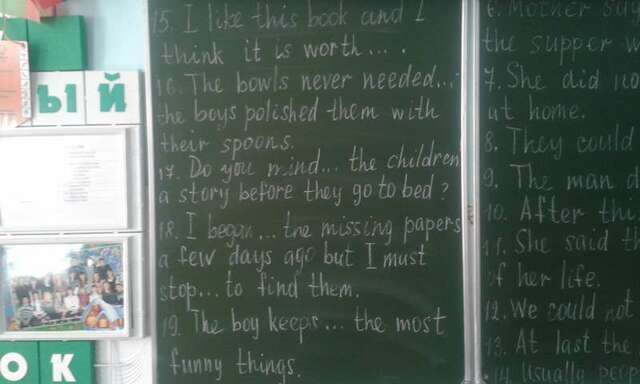 ый
ок
15. I like this book and I
think it is worth... .
16. The bowls never needed...;
the boys polished them with
their spoons.
17. Do you mind... the children
a story before they go to bed?
18. I began... the missing papers
a few days ago but I must
stop... to find them.
19. The boy keeps... the most
funny things.
6. Mother
the supper
7. She did
at home.
8. They could
9. The man
10. After
11. She said
of her life.
12. We could not
13. At last the
14. Usually